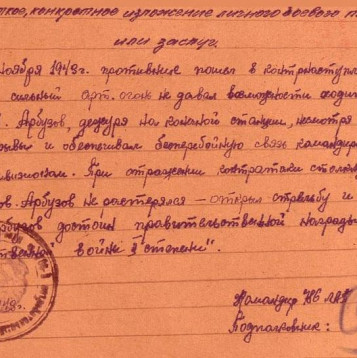 кое, конкретное изложение личного боевого п
или заслуг.
ноября 1943г. противник пошел в контрнаступл
сильный арт. огонь не давал возможности ходит
. Арбузов, дежуря на станции, несмотря
рывы и обеспечивал бесперебойную связь командира
дивизионам. При отражении контратаки
ов. Арбузов не растерялся — открыл стрельбу и
рбузов достоин правительственной награды
войны 3 степени".
Командир
Подполковник: